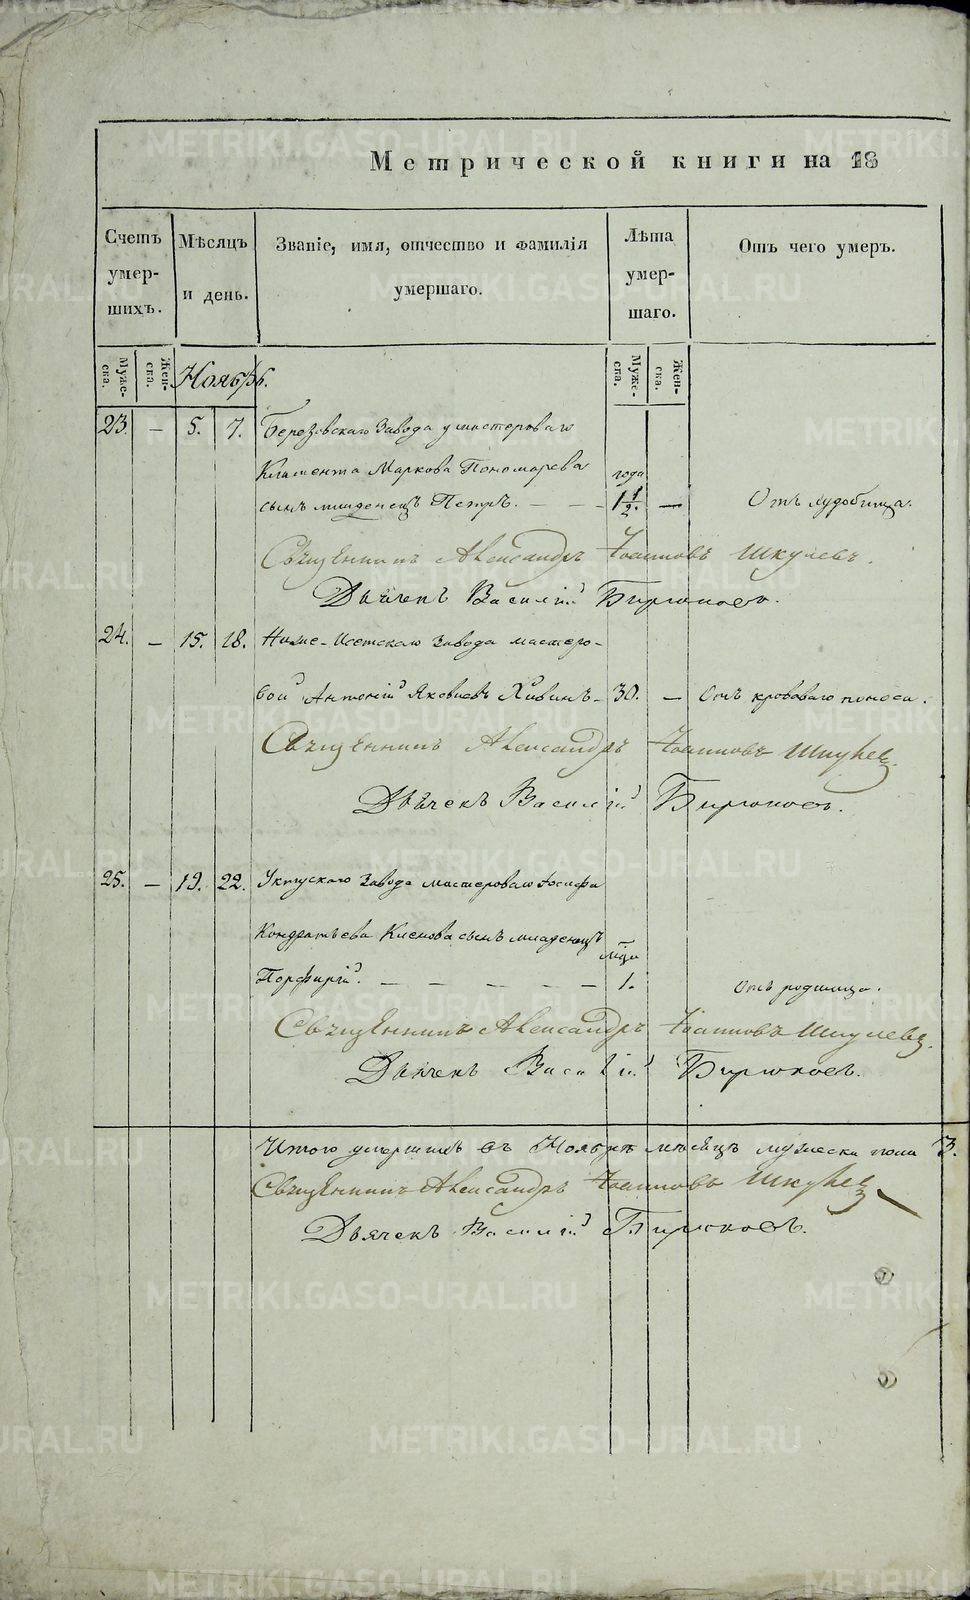 Метрической книги на 18
Счетъ умер- шихъ.
Мѣсяцъ и день.
Званіе, имя, отчество и фамилія умершаго.
Лѣта умер- шаго.
Отъ чего умеръ.
Муже- ска.
Жен- ска.
Ноябрь.
Муже- ска.
Жен- ска.
23. — 5. 7. Березовскаго Завода у мастероваго
Климента Маркова Пономарева года
сынъ младенецъ Петръ. — — 1 1/2. — Отъ худобища.
Священникъ Александръ Іоанновъ Шкулевъ.
Дьячекъ Василій Бирюковъ.
24. — 15. 18. Ниже-Исетскаго Завода мастеро-
вой Антоній Яковлевъ Хивинъ - 30. — Отъ кроваваго поноса.
Священникъ Александръ Іоанновъ Шкулевъ.
Дьячекъ Василій Бирюковъ.
25. — 19. 22. Уктускаго Завода мастероваго Іосифа
Кондратьева Клемова сынъ младенецъ мѣсц
Порфирій. — — — — — 1. Отъ родимца.
Священникъ Александръ Іоанновъ Шкулевъ.
Дьячекъ Василій Бирюковъ.
Итого умершихъ въ Ноябрѣ мѣсяцѣ мужеска пола 3.
Священникъ Александръ Іоанновъ Шкулевъ
Дьячекъ Василій Бирюковъ.
METRIKI.GASO-URAL.RU